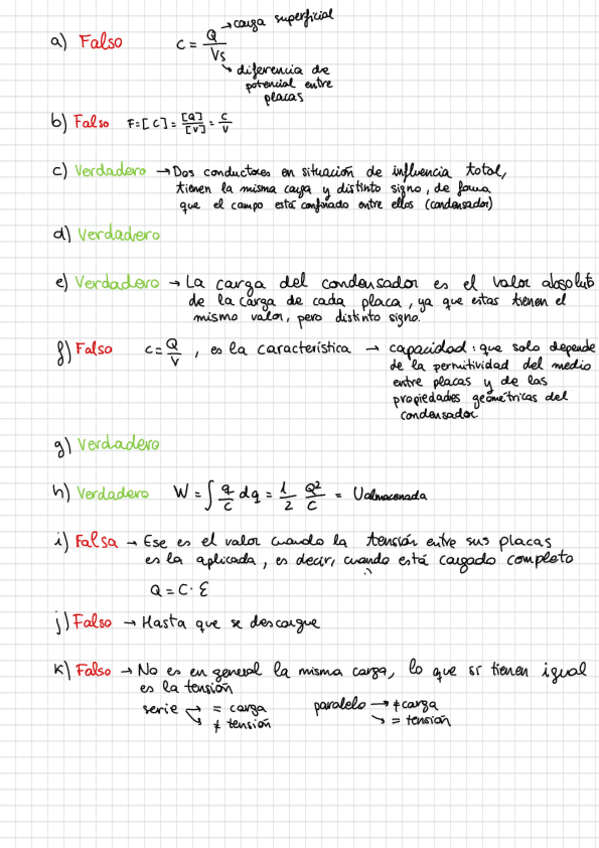 → carga superficial
a) Falso C = Q / Vs
↘ diferencia de
potencial entre
placas
b) Falso F = [C] = [Q] / [V] = C / V
c) Verdadero → Dos conductores en situación de influencia total,
tienen la misma carga y distinto signo, de forma
que el campo está confinado entre ellos (condensador)
d) Verdadero
e) Verdadero → La carga del condensador es el valor absoluto
de la carga de cada placa, ya que estas tienen el
mismo valor, pero distinto signo.
f) Falso C = Q / V , es la característica → capacidad: que solo depende
de la permitividad del medio
entre placas y de las
propiedades geométricas del
condensador
g) Verdadero
h) Verdadero W = ∫ q/C dq = 1/2 Q²/C = Ualmacenada
i) Falsa → Ese es el valor cuando la tensión entre sus placas
es la aplicada, es decir, cuando está cargado completo
Q = C · Ɛ
j) Falso → Hasta que se descargue
k) Falso → No es en general la misma carga, lo que sí tienen igual
es la tensión
serie → = carga paralelo → ≠ carga
↘ ≠ tensión ↘ = tensión